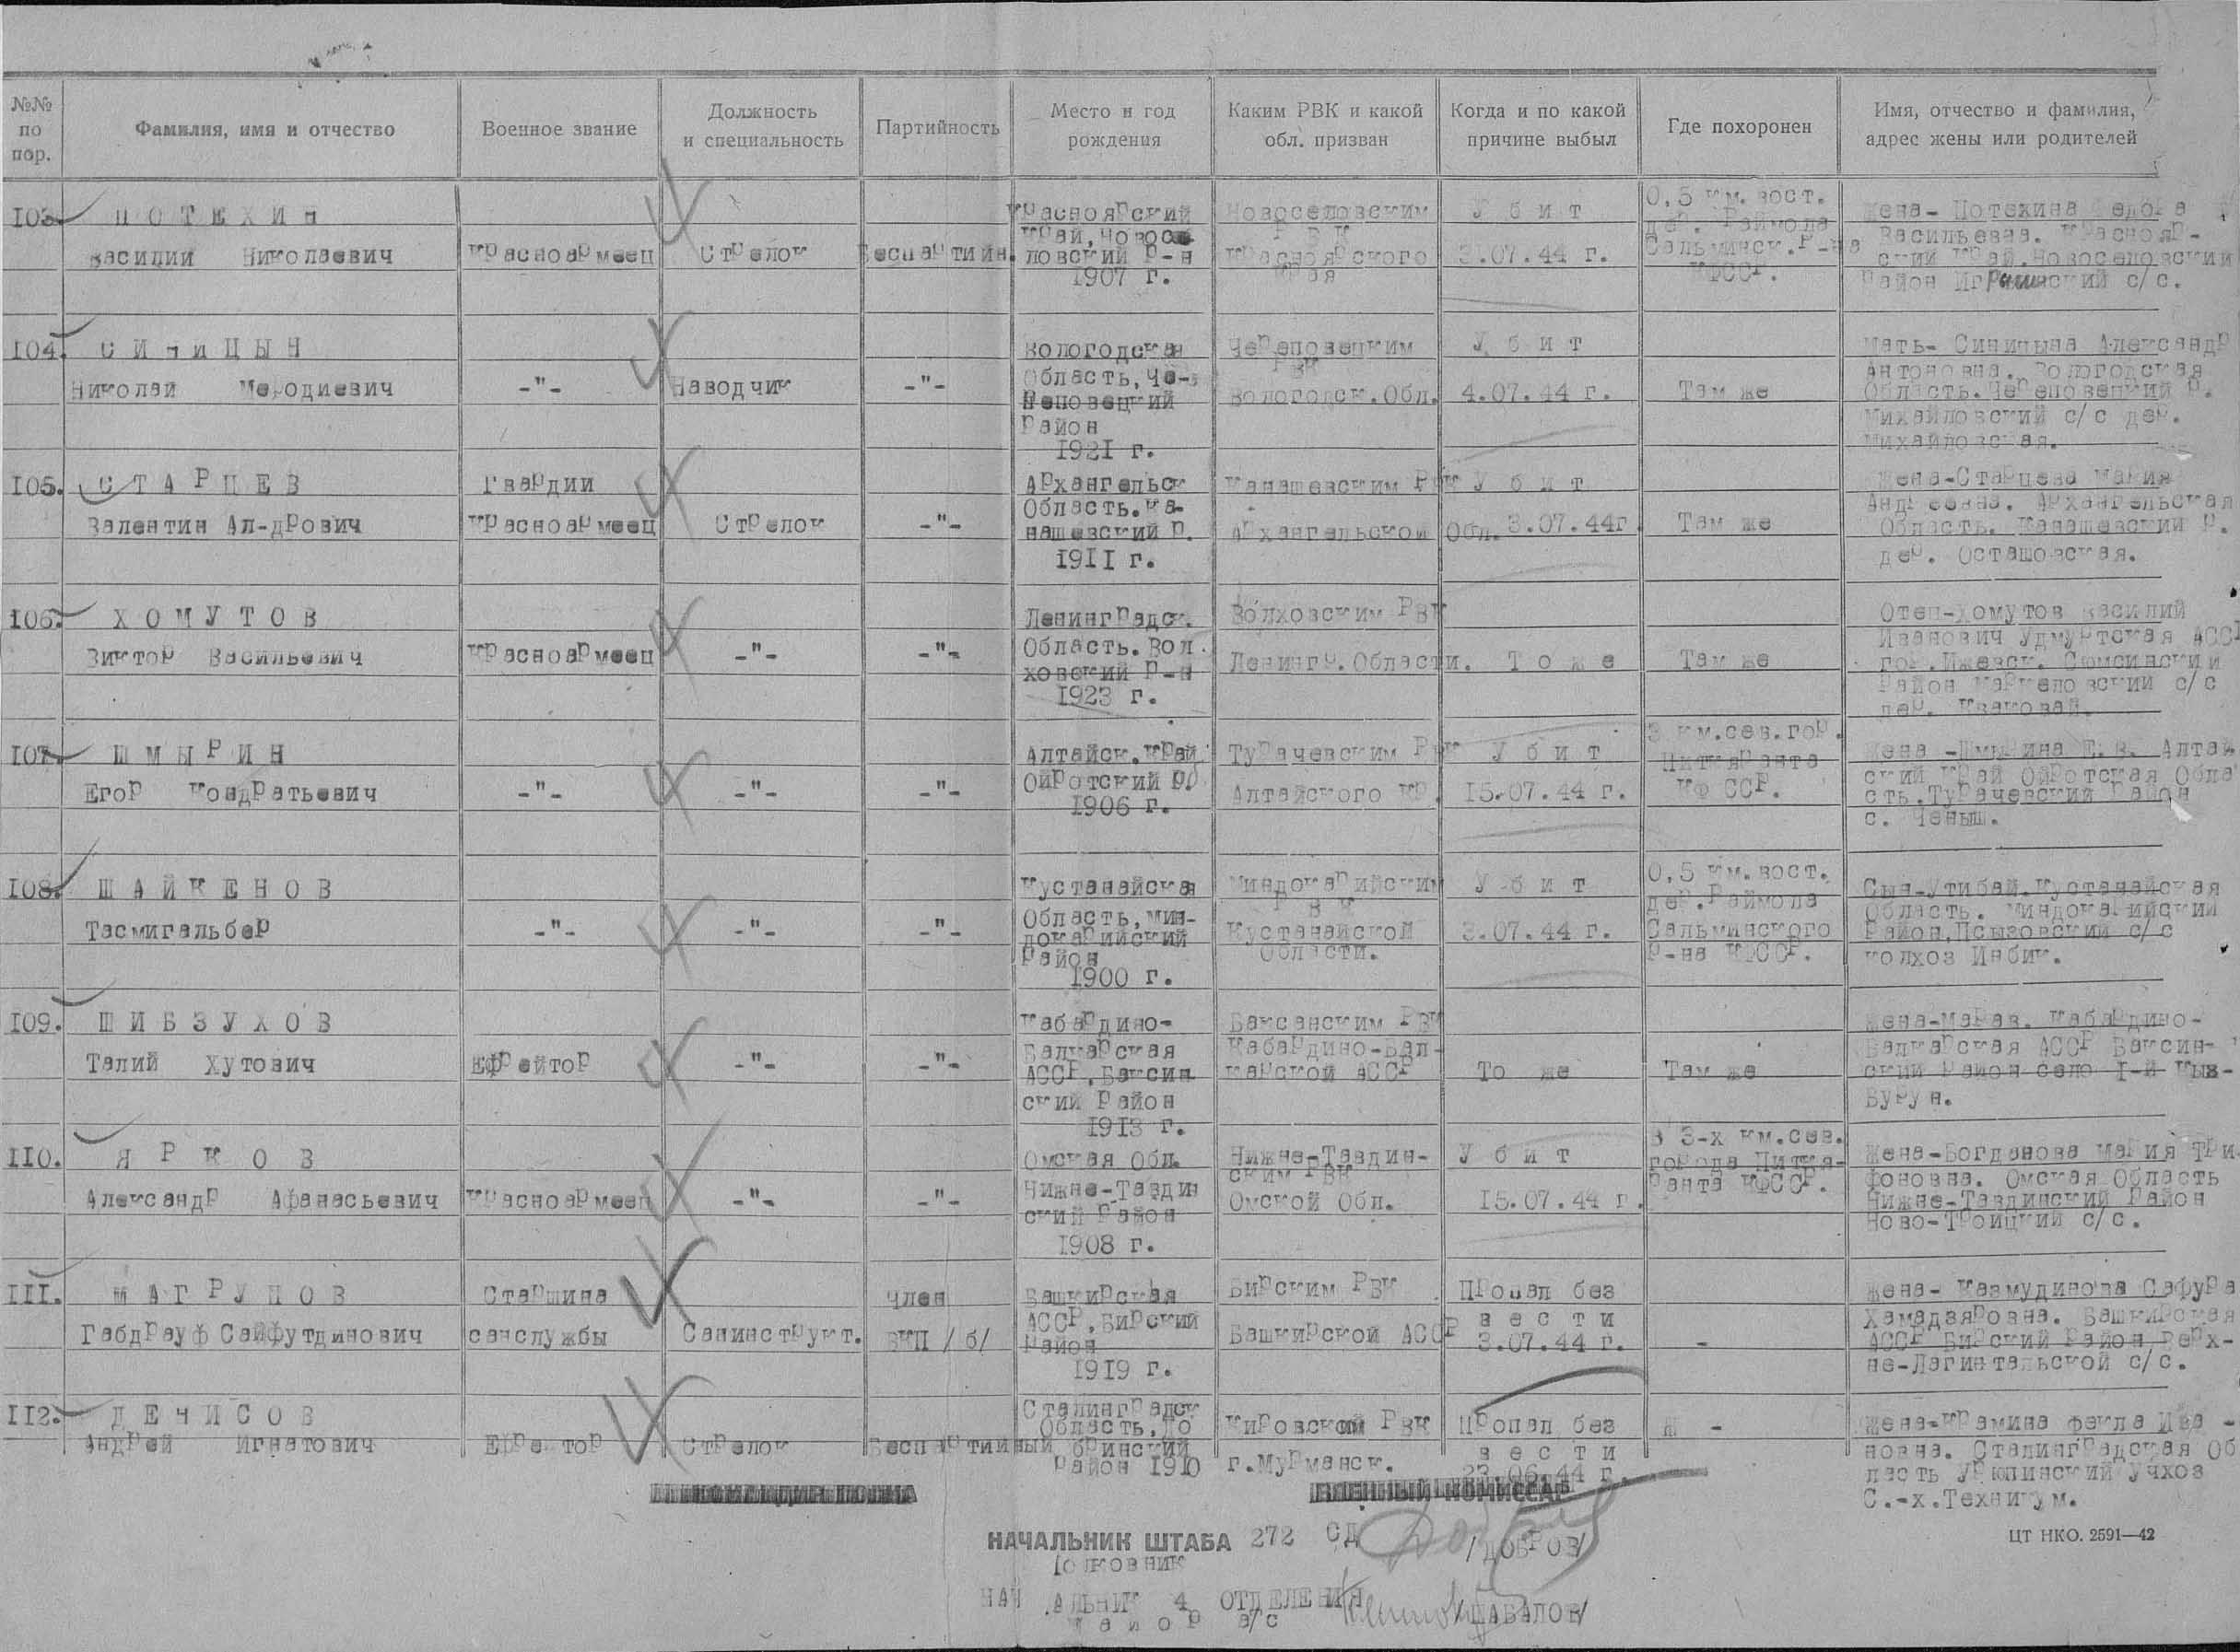 №№ по пор.
Фамилия, имя и отчество
Военное звание
Должность и специальность
Партийность
Место и год рождения
Каким РВК и какой обл. призван
Когда и по какой причине выбыл
Где похоронен
Имя, отчество и фамилия, адрес жены или родителей
103. ПОТЕХИН
Василий Николаевич
Красноармеец
Стрелок
Беспартийн.
Красноярский
Край, Новосе
ловский Р-н
1907 г.
Новоселовским
РВК
Красноярского
Края
Убит
3.07.44 г.
0,5 км. вост.
дер. Раймола
Сальминск. Р-на
КФССР.
Жена- Потехина Федора
Васильевна. Краснояр-
ский Край. Новоселовский
Район с/с.
104. СИНИЦЫН
Николай Меродиевич
-"-
Наводчик
-"-
Вологодская
Область, Че-
реповецкий
Район
1921 г.
Череповецким
РВК
Вологодск. Обл.
Убит
4.07.44 г.
Там же
Мать- Синицына Александр
Антоновна. Вологодская
Область. Череповецкий Р.
Михайловский с/с дер.
Михайловская.
105. СТАРЦЕВ
Валентин Ал-дрович
Гвардии
Красноармеец
Стрелок
-"-
Архангельск
Область. Ка-
нашевский Р.
1911 г.
Канашевским РВК
Архангельской Обл.
Убит
3.07.44г
Там же
Жена-Старцева Мария
Андреевна. Архангельская
Область. Канашевский Р.
дер. Осташовская.
106. ХОМУТОВ
Виктор Васильевич
Красноармеец
-"-
-"-
Ленинградск.
Область. Вол.
ховский Р-н
1923 г.
Волховским РВК
Ленингр. Области.
То же
Там же
Отец-Хомутов Василий
Иванович Удмуртская АССР
гор. Ижевск. Сюмсинский
Район Маркеловский с/с
дер. Кваковай.
107. ШМЫРИН
Егор Кондратьевич
-"-
-"-
-"-
Алтайск. Край
Ойротский Р.
1906 г.
Турачевским РВК
Алтайского Кр.
Убит
15.07.44 г.
3 км. сев. гор.
Питкяранта
КФ ССР.
Жена -Шмырина Е.В. Алтай
ский Край Ойротская Обла
сть. Турачевский Район
с. Ченыш.
108. ШАЙКЕНОВ
Тасмигальбер
-"-
-"-
-"-
Кустанайская
Область, Мин-
докарийский
Район
1900 г.
Миндокарийским
РВК
Кустанайской
Области.
Убит
3.07.44 г.
0,5 км. вост.
дер. Раймола
Сальминского
Р-на КФССР.
Сын-Утибай. Кустанайская
Область. Миндокарийский
Район, Псызовский с/с
колхоз Инбик.
109. ШИБЗУХОВ
Талий Хутович
Ефрейтор
-"-
-"-
Кабардино-
Балкарская
АССР. Баксин
ский Район
1913 г.
Баксанским РВК
Кабардино-Бал-
карской АССР
То же
Там же
Жена-Марав. Кабардино-
Балкарская АССР Баксин-
ский Район село 1-й Кыз-
Бурун.
110. ЯРКОВ
Александр Афанасьевич
Красноармеец
-"-
-"-
Омская Обл.
Нижне-Тавдин
ский Район
1908 г.
Нижне-Тавдин-
ским РВК
Омской Обл.
Убит
15.07.44 г.
в 3-х км. сев.
города Питкя-
ранта КФССР.
Жена-Богданова Мария Три
фоновна. Омская Область
Нижне-Тавдинский Район
Ново-Троицкий с/с.
111. МАГРУПОВ
Габдрауф Сайфутдинович
Старшина
санслужбы
Санинструкт.
Член
ВКП /б/
Башкирская
АССР. Бирский
Район
1919 г.
Бирским РВК
Башкирской АССР
Пропал без
вести
3.07.44 г.
-
Жена- Казмудинова Сафура
Хамадзяровна. Башкирская
АССР Бирский Район, Верх-
не-Лагинтальской с/с.
112. ДЕНИСОВ
Андрей Игнатович
Ефрейтор
Стрелок
Беспартийный
Сталинградск
Область, До
бринский
Район 1910
Кировским РВК
г. Мурманск.
Пропал без
вести
23.06.44 г.
-
Жена-Крамина Фекла Ива -
новна. Сталинградская Об
ласть Урюпинский Учхоз
С.-х. Техникум.
ВОЕННЫЙ КОМИССАР
НАЧАЛЬНИК ШТАБА 272 СД
Полковник
/ДОБРОВ/
НАЧАЛЬНИК 4 ОТДЕЛЕНИЯ
Майор а/с
/ШАБАЛОВ/
ЦТ НКО. 2591—42